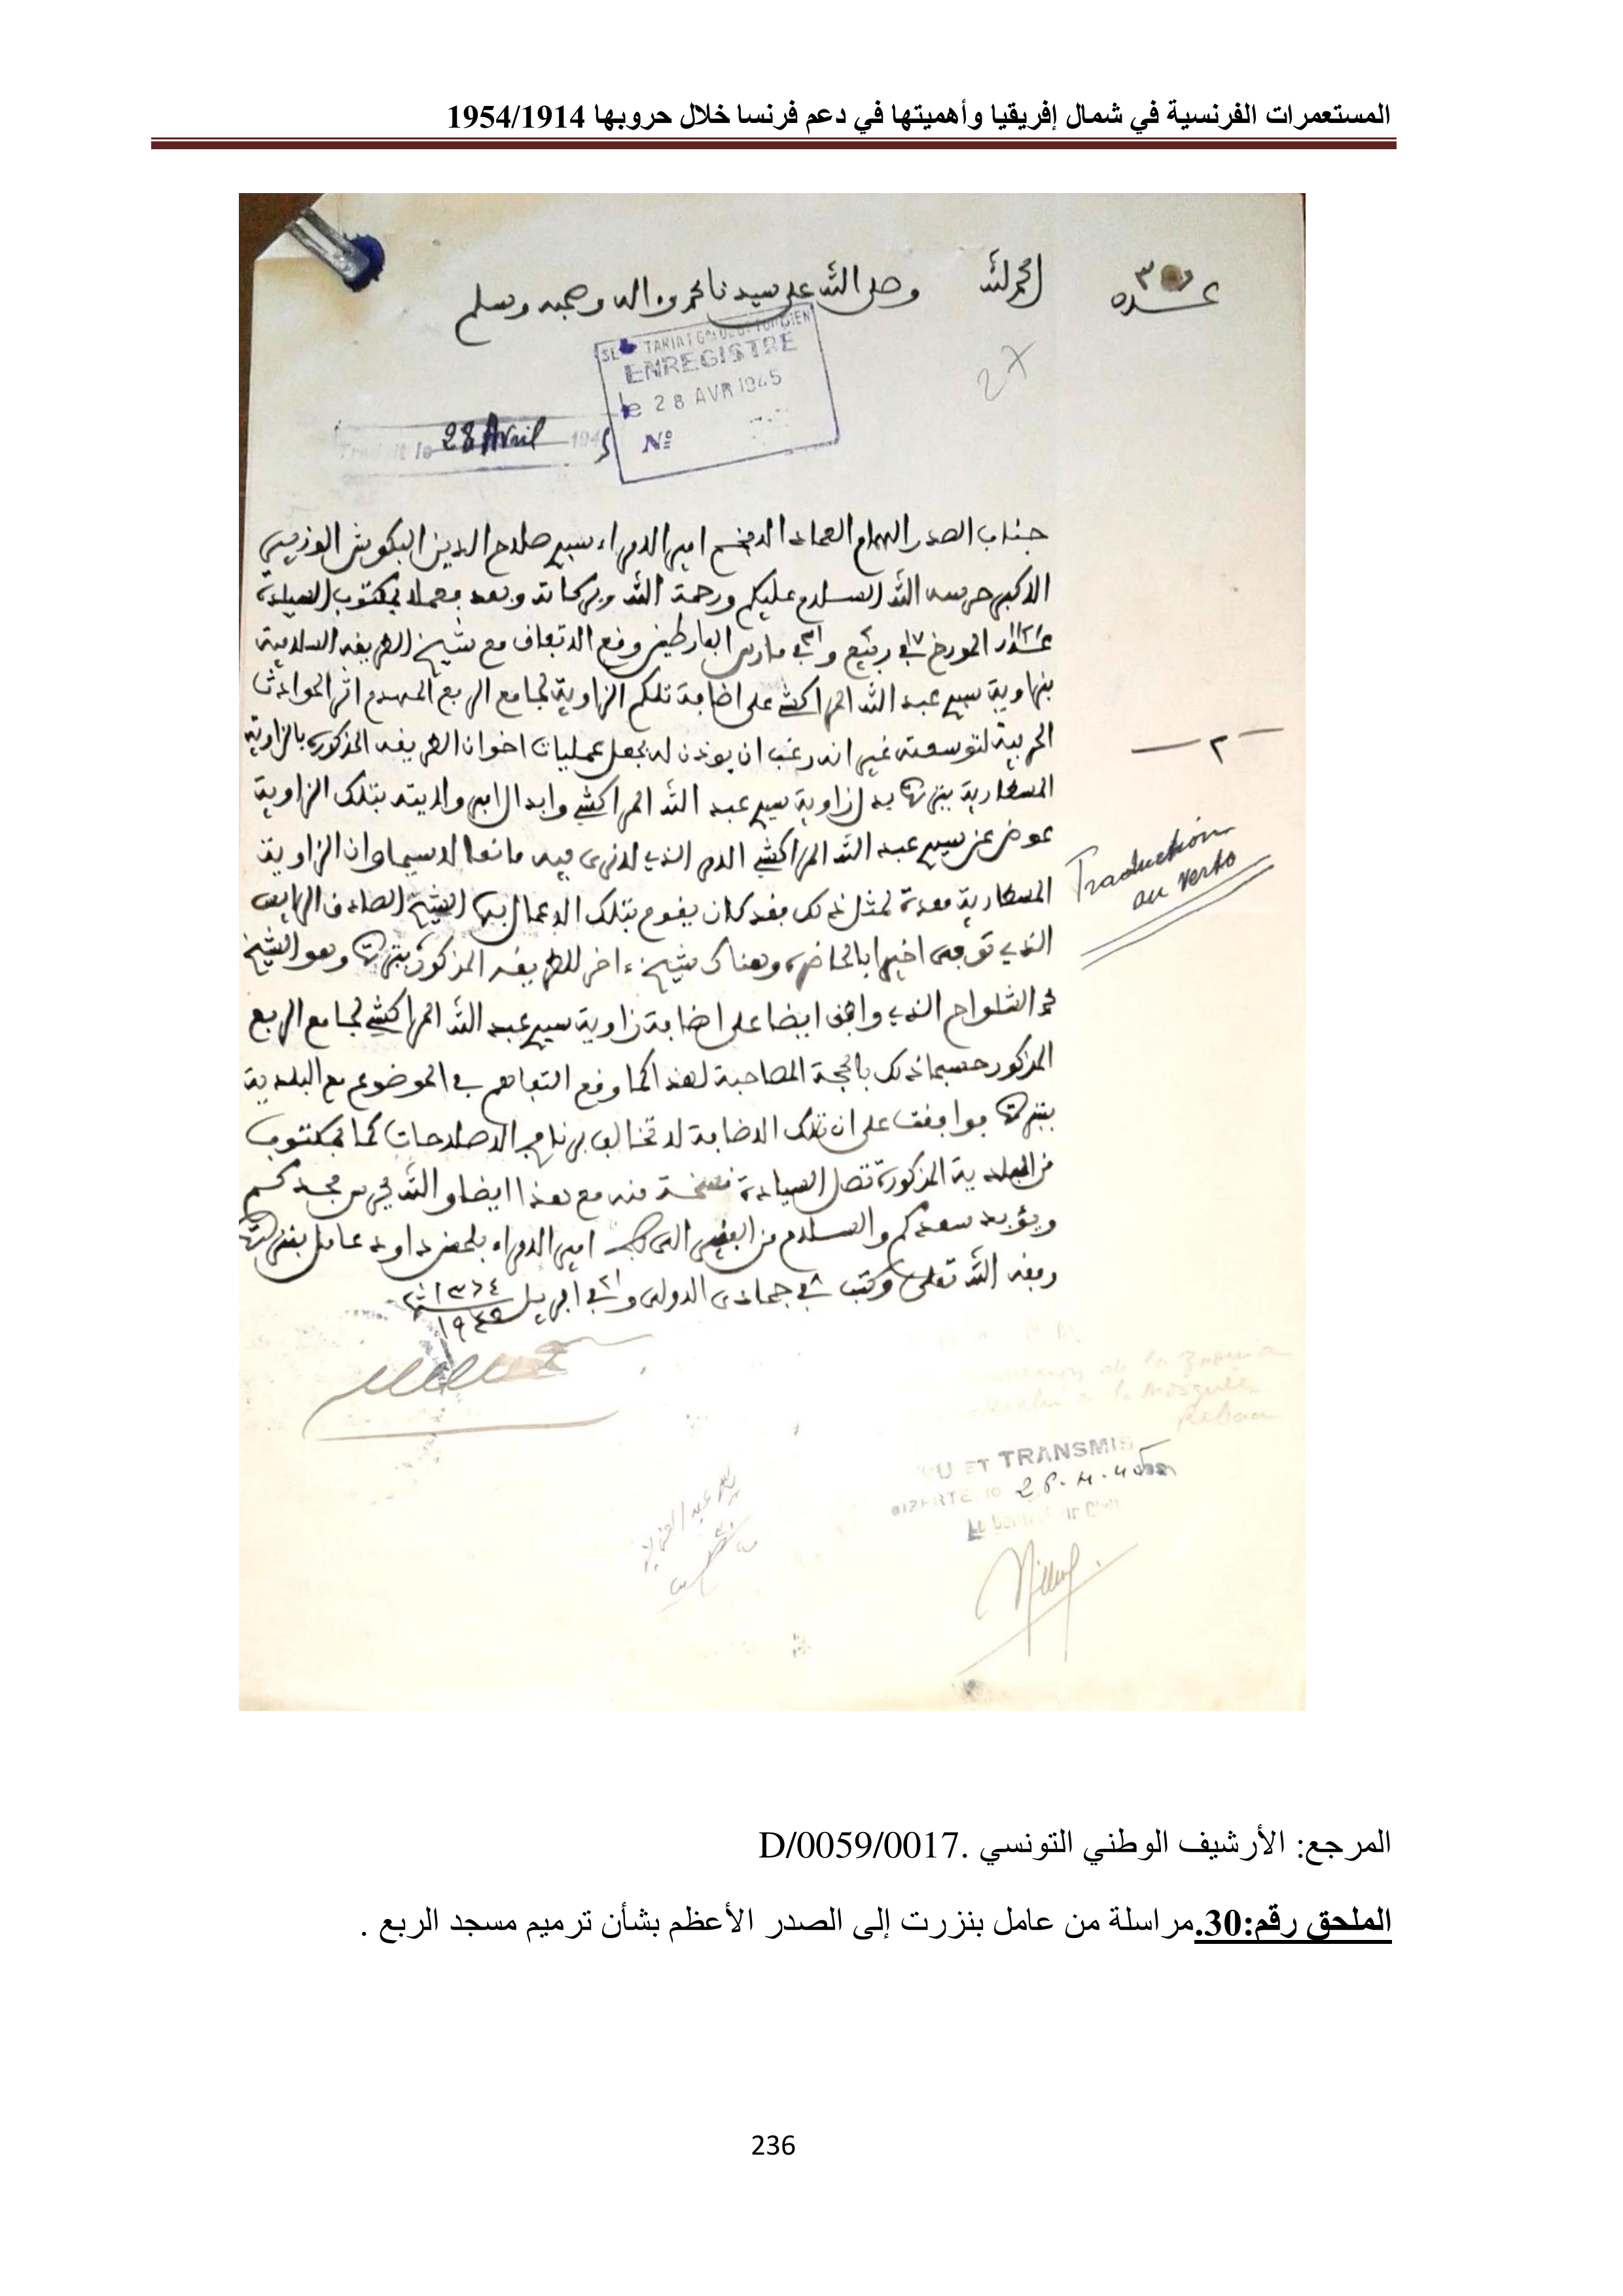 المستعمرات الفرنسية في شمال إفريقيا وأهميتها في دعم فرنسا خلال حروبها 1954/1914
الحمد لله وصلى الله على سيدنا محمد وءاله وصحبه وسلم
عدد
27
ENREGISTRE
le 28 AVR 1945
Nº
Traduit le 28 Avril 1945
جناب الصدر الهمام العماد الافخم امير الامراء سيدي صلاح الدين البكوش الوزير
الاكبر حرسه الله السلام عليكم ورحمة الله وبركاته وبعد فعملا بمكتوب السيادة
المورخ في ١٧ ربيع وفي مارس الفارطين وقع الاتفاق مع شيخ الطريقة السلامية
بزاوية سيدي عبد الله المراكشي على اضافة تلكم الزاوية لجامع الربع المهدم اثر الحوادث
الحربية لتوسعته غير انه رغب ان يوذن له بجعل عمليات اخوان الطريقة المذكورة بالزاوية
المسطارية ببنزرت بدل زاوية سيدي عبد الله المراكشي وابدال امر ولايته بتلك الزاوية
عوض عن سيدي عبد الله المراكشي الامر الذي لا نرى فيه مانعا لا سيما وان الزاوية
المسطارية معدة لمثل ذلك فقد كان يقوم بتلك الاعمال بها الشيخ الصادق الرايس
الذي توفى اخيرا بالحاضرة وهناك شيخ ءاخر للطريقة المذكورة ببنزرت وهو الشيخ
محمد الشلواح الذي وافق ايضا على اضافة زاوية سيدي عبد الله المراكشي لجامع الربع
المذكور حسبما ذلك بالحجة المصاحبة لهذا كما وقع التفاهم في الموضوع مع البلدية
ببنزرت فوافقت على ان تلك الاضافة لا تخالف برنامج الاصلاحات كما بمكتوب
من البلدية المذكورة تصل السيادة نسخة منه مع هذا ايضا والله يحرس مجدكم
ويؤيد سعدكم والسلام من الفقير الى ربه امير الامراء بلحسن داود عامل بنزرت
وفقه الله تعلى وكتب في ٨ جمادى الاولى وفي ٢١ ابريل ١٣٦٤
١٩٤٥
— ٢ —
Traduction
au verso
VU ET TRANSMIS
BIZERTE le
المرجع: الأرشيف الوطني التونسي .D/0059/0017
الملحق رقم:30.مراسلة من عامل بنزرت إلى الصدر الأعظم بشأن ترميم مسجد الربع .
236